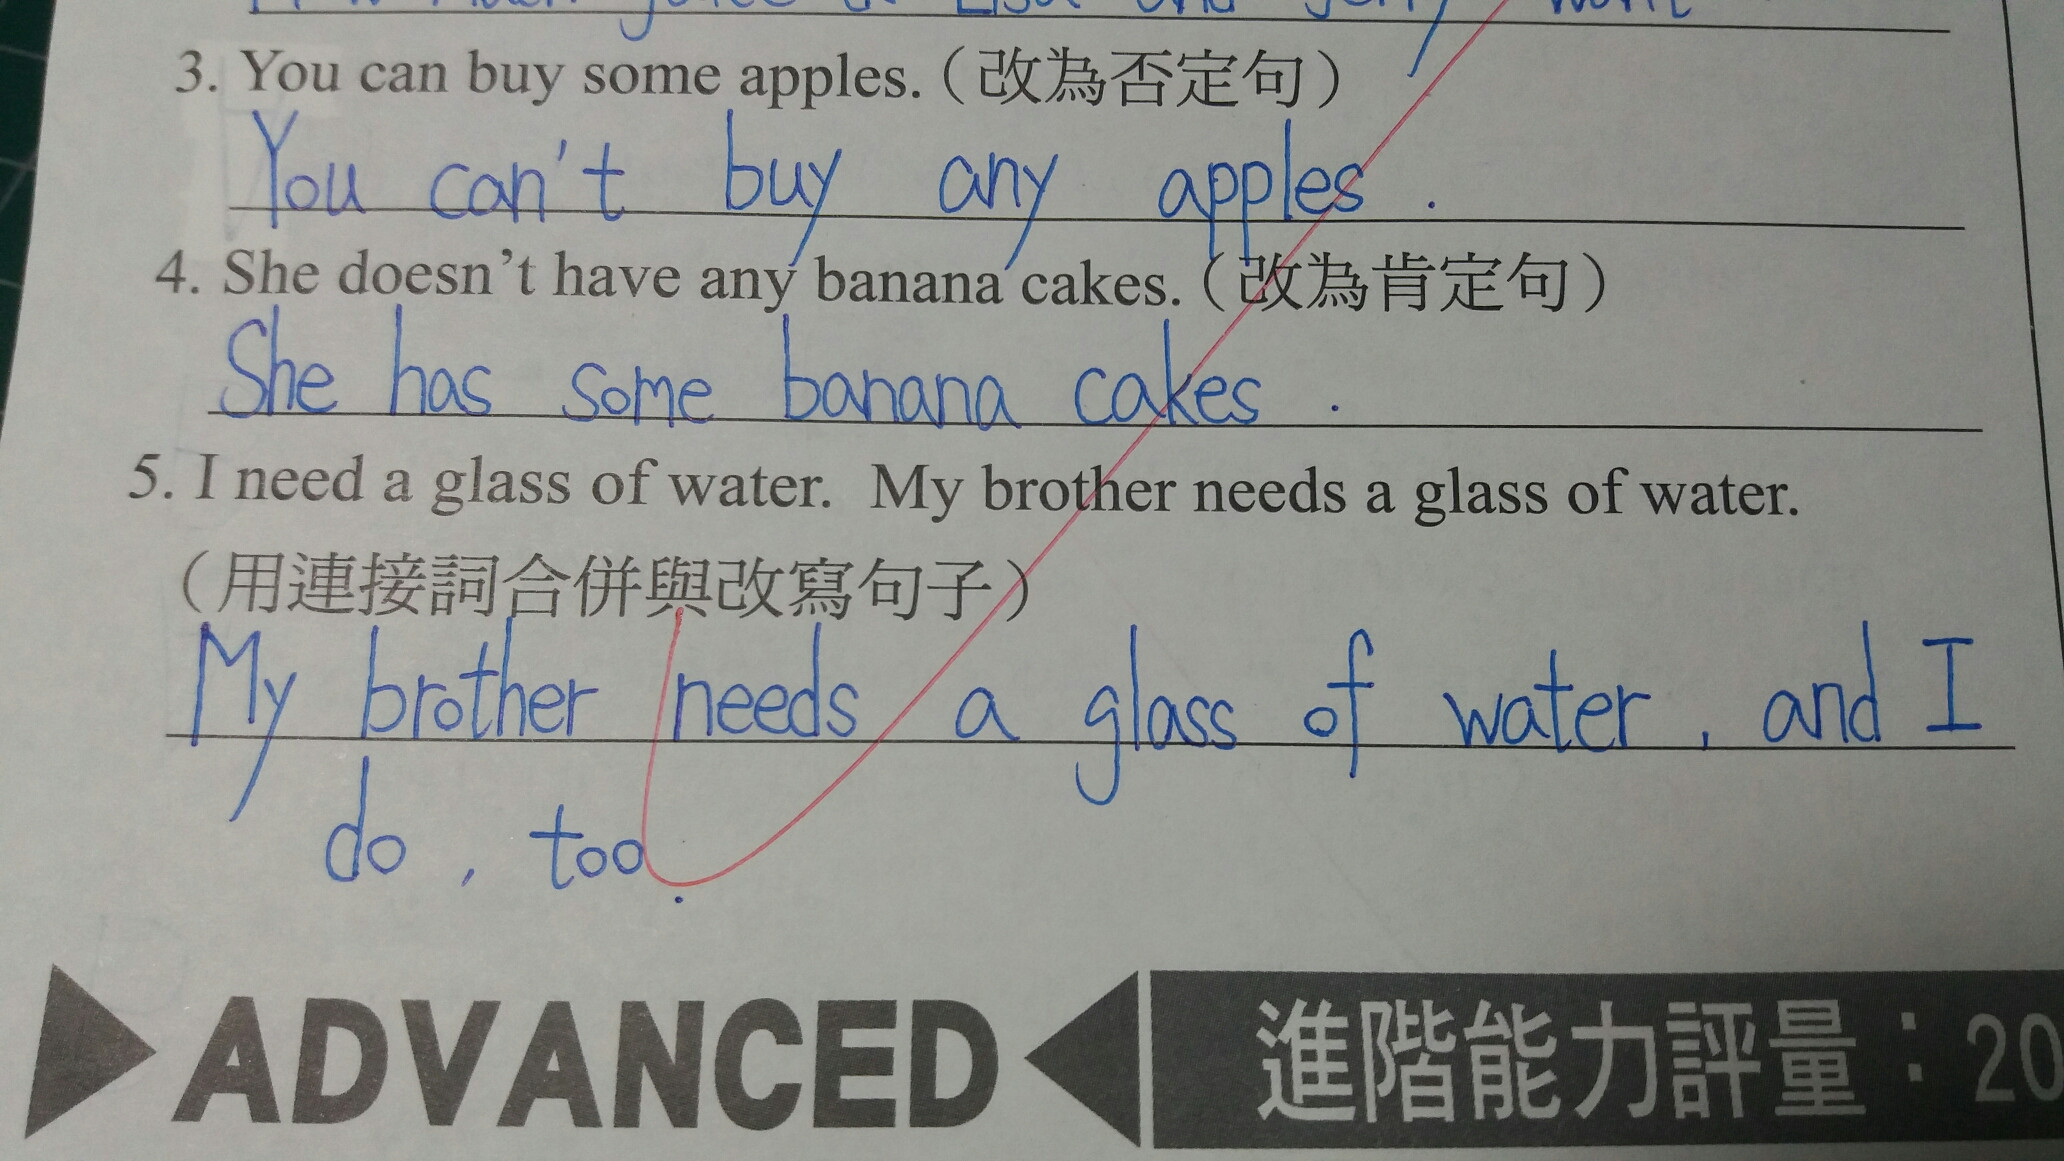 Lisa and
3. You can buy some apples.（改為否定句）
You can't buy any apples.
4. She doesn't have any banana cakes.（改為肯定句）
She has some banana cakes.
5. I need a glass of water. My brother needs a glass of water.
（用連接詞合併與改寫句子）
My brother needs a glass of water, and I
do, too.
ADVANCED 進階能力評量：20